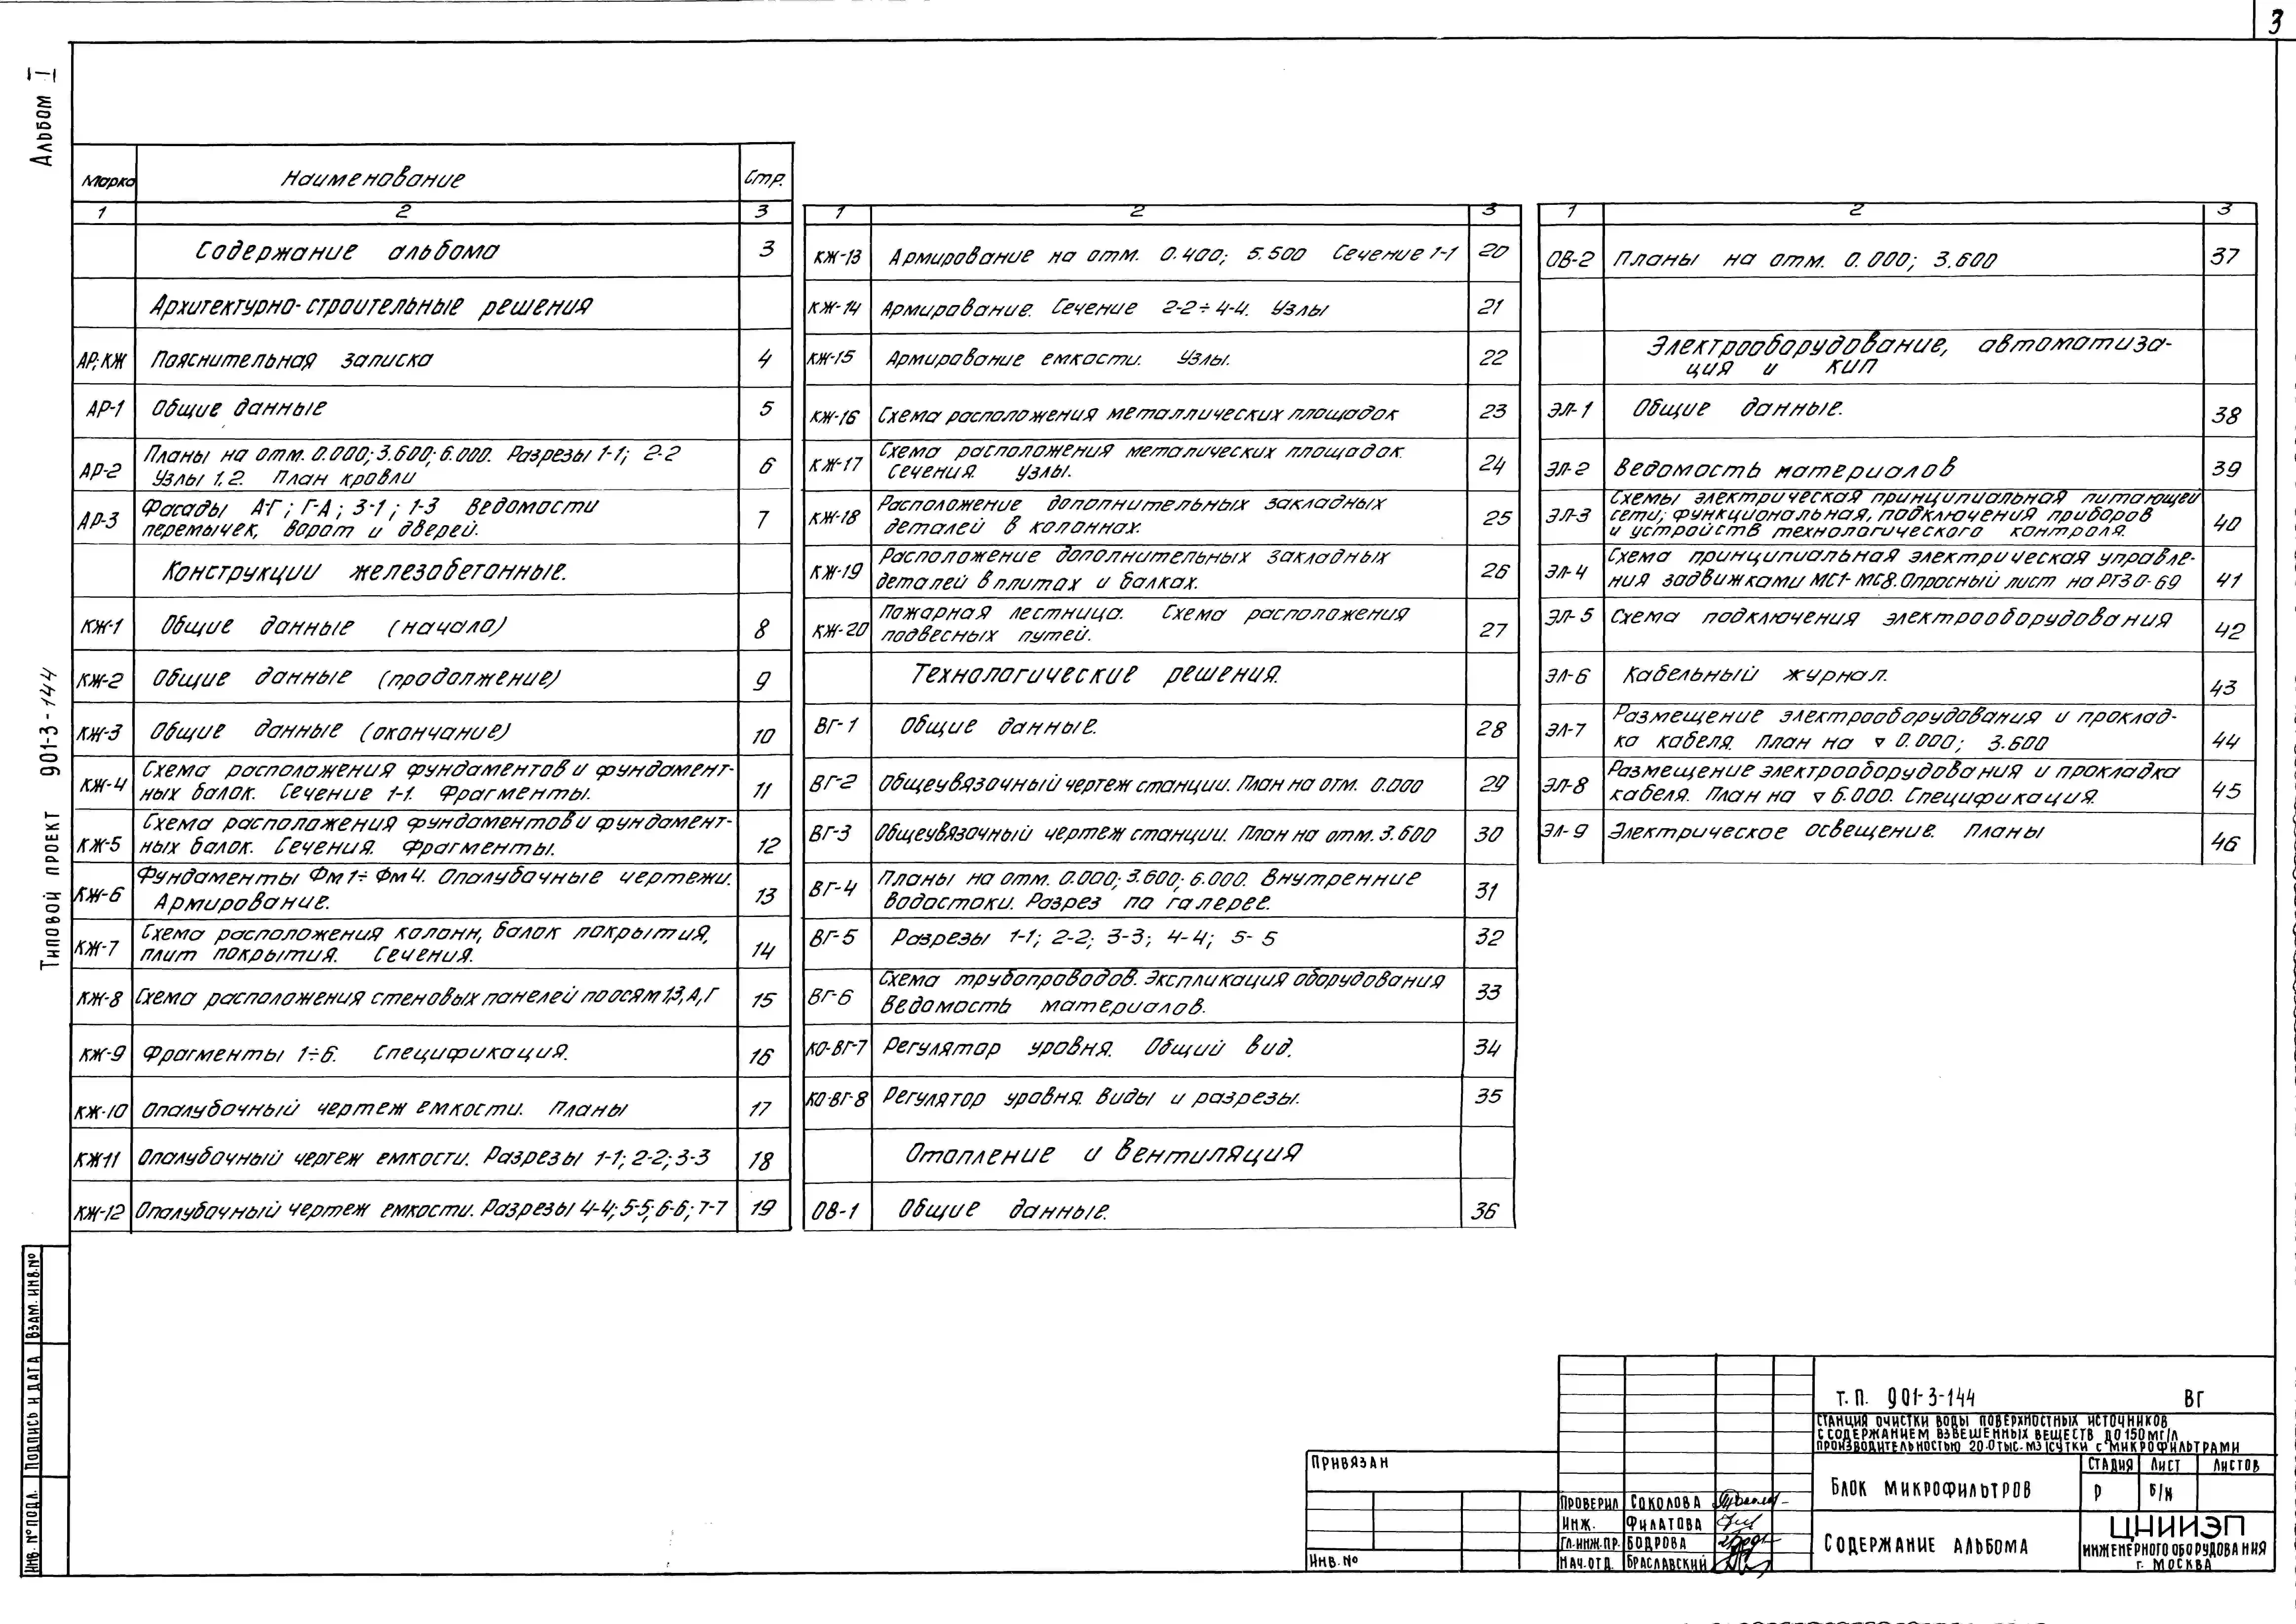 3
Альбом I
Типовой проект 901-3-144
Марка Наименование Стр.
1 2 3
Содержание альбома 3
Архитектурно-строительные решения
АР, КЖ Пояснительная записка 4
АР-1 Общие данные 5
АР-2 Планы на отм. 0.000; 3.600; 6.000. Разрезы 1-1; 2-2
Узлы 1, 2. План кровли 6
АР-3 Фасады А-Г; Г-А; 3-1; 1-3 Ведомости
перемычек, ворот и дверей. 7
Конструкции железобетонные.
КЖ-1 Общие данные (начало) 8
КЖ-2 Общие данные (продолжение) 9
КЖ-3 Общие данные (окончание) 10
КЖ-4 Схема расположения фундаментов и фундамент-
ных балок. Сечение 1-1. Фрагменты. 11
КЖ-5 Схема расположения фундаментов и фундамент-
ных балок. Сечения. Фрагменты. 12
КЖ-6 Фундаменты Фм1÷Фм4. Опалубочные чертежи.
Армирование. 13
КЖ-7 Схема расположения колонн, балок покрытия,
плит покрытия. Сечения. 14
КЖ-8 Схема расположения стеновых панелей по осям 1,3,А,Г 15
КЖ-9 Фрагменты 1÷6. Спецификация. 16
КЖ-10 Опалубочный чертеж емкости. Планы 17
КЖ-11 Опалубочный чертеж емкости. Разрезы 1-1; 2-2; 3-3 18
КЖ-12 Опалубочный чертеж емкости. Разрезы 4-4; 5-5; 6-6; 7-7 19
1 2 3
КЖ-13 Армирование на отм. 0.400; 5.500 Сечение 1-1 20
КЖ-14 Армирование. Сечение 2-2÷4-4. Узлы 21
КЖ-15 Армирование емкости. Узлы. 22
КЖ-16 Схема расположения металлических площадок 23
КЖ-17 Схема расположения металических площадок.
Сечения. Узлы. 24
КЖ-18 Расположение дополнительных закладных
деталей в колоннах. 25
КЖ-19 Расположение дополнительных закладных
деталей в плитах и балках. 26
КЖ-20 Пожарная лестница. Схема расположения
подвесных путей. 27
Технологические решения.
ВГ-1 Общие данные. 28
ВГ-2 Общеувязочный чертеж станции. План на отм. 0.000 29
ВГ-3 Общеувязочный чертеж станции. План на отм. 3.600 30
ВГ-4 Планы на отм. 0.000; 3.600; 6.000. Внутренние
водостоки. Разрез по галерее. 31
ВГ-5 Разрезы 1-1; 2-2; 3-3; 4-4; 5-5 32
ВГ-6 Схема трубопроводов. Экспликация оборудования
Ведомость материалов. 33
КО-ВГ-7 Регулятор уровня. Общий вид. 34
КО-ВГ-8 Регулятор уровня. Виды и разрезы. 35
Отопление и вентиляция
ОВ-1 Общие данные. 36
1 2 3
ОВ-2 Планы на отм. 0.000; 3.600 37
Электрооборудование, автоматиза-
ция и КИП
ЭЛ-1 Общие данные. 38
ЭЛ-2 Ведомость материалов 39
ЭЛ-3 Схемы электрическая принципиальная питающей
сети; функциональная, подключения приборов
и устройств технологического контроля. 40
ЭЛ-4 Схема принципиальная электрическая управле-
ния задвижками МС1-МС8. Опросный лист на РТЗО-69 41
ЭЛ-5 Схема подключения электрооборудования 42
ЭЛ-6 Кабельный журнал. 43
ЭЛ-7 Размещение электрооборудования и проклад-
ка кабеля. План на ▿ 0.000; 3.600 44
ЭЛ-8 Размещение электрооборудования и прокладка
кабеля. План на ▿ 6.000. Спецификация. 45
ЭЛ-9 Электрическое освещение. Планы 46
Инв. № подл. Подпись и дата Взам. инв. №
Привязан
Инв. №
Т.П. 901-3-144 ВГ
Станция очистки воды поверхностных источников
с содержанием взвешенных веществ до 150 мг/л
производительностью 20.0 тыс. м3/сутки с микрофильтрами
Проверил Соколова
Инж. Филатова
Гл. инж. пр. Бодрова
Нач. отд. Браславский
Блок микрофильтров
Стадия Лист Листов
Р б/н
Содержание альбома
ЦНИИЭП
инженерного оборудования
г. Москва